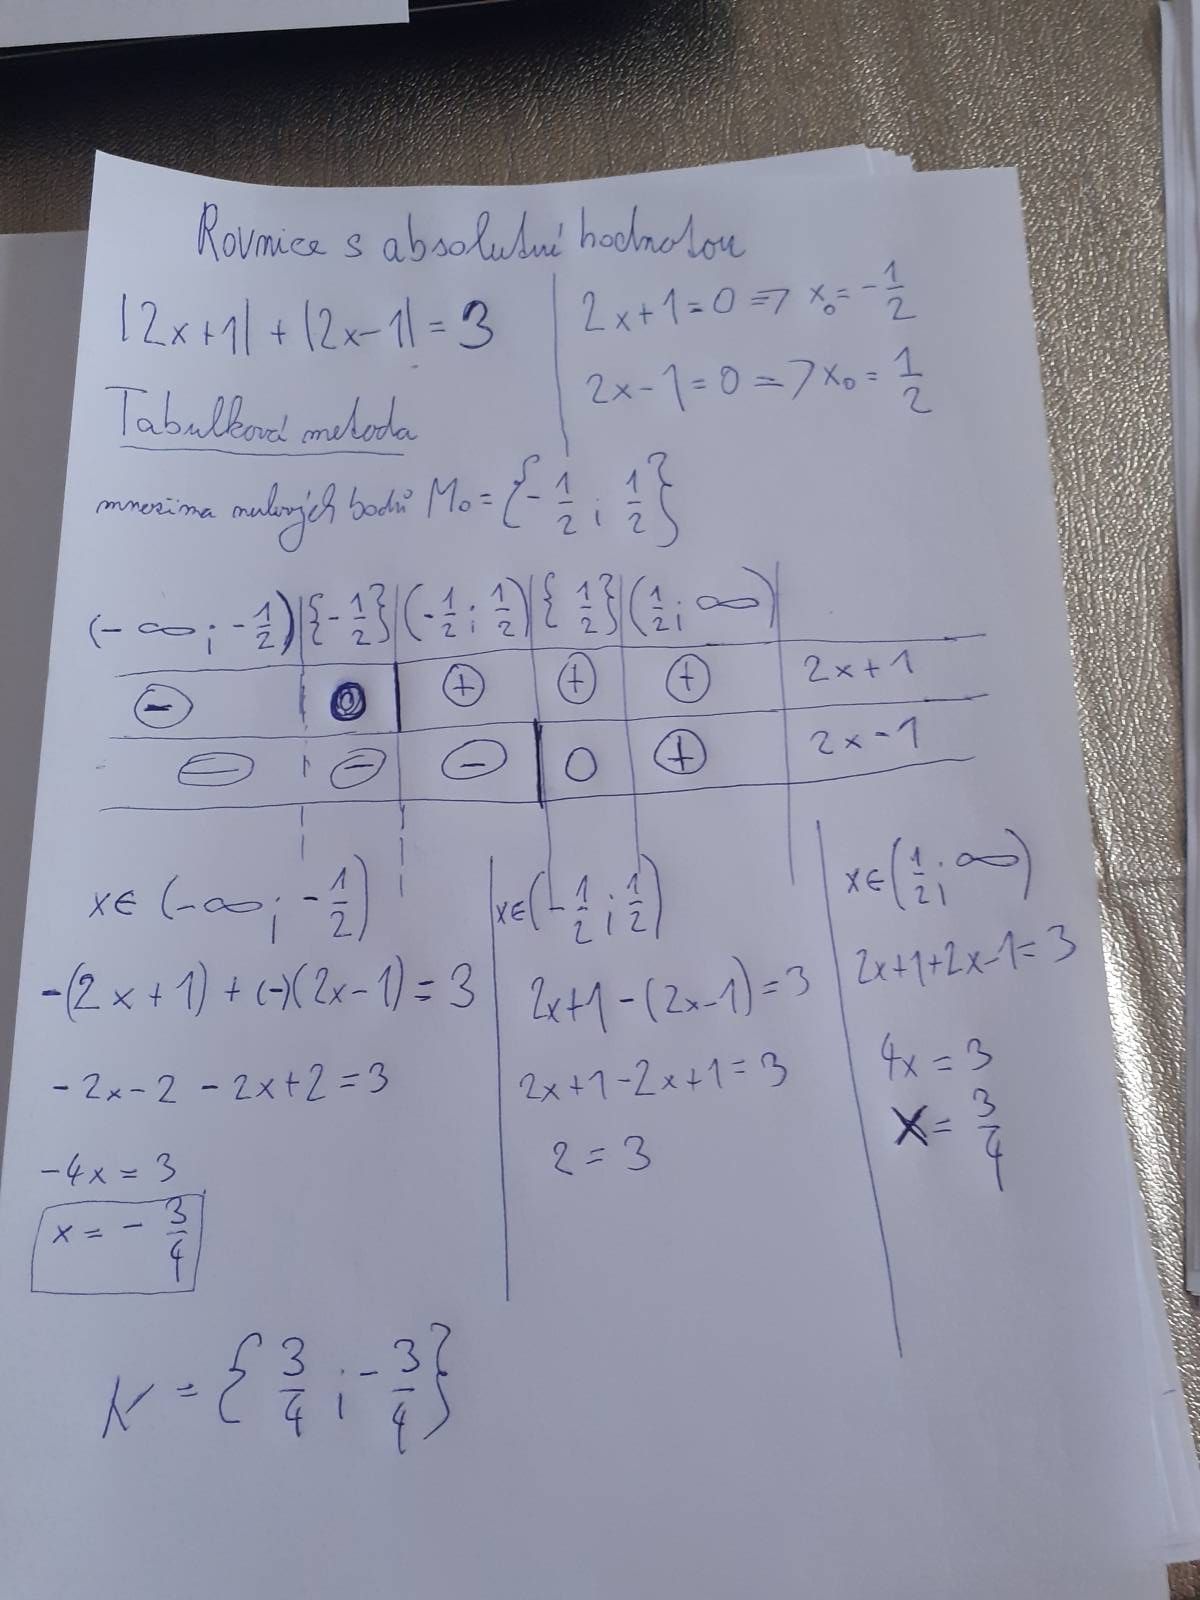 Rovnice s absolutní hodnotou
|2x+1| + |2x-1| = 3
2x+1=0 => x₀ = -1/2
2x-1=0 => x₀ = 1/2
Tabulková metoda
množina nulových bodů M₀ = {-1/2 ; 1/2}
(-∞ ; -1/2) {-1/2} (-1/2 ; 1/2) {1/2} (1/2 ; ∞)
- 0 + + + 2x+1
- - - 0 + 2x-1
x∈ (-∞ ; -1/2)
-(2x+1) + (-)(2x-1) = 3
-2x-2 -2x+2 = 3
-4x = 3
x = -3/4
x∈(-1/2 ; 1/2)
2x+1-(2x-1) = 3
2x+1-2x+1 = 3
2 = 3
x∈(1/2 ; ∞)
2x+1+2x-1 = 3
4x = 3
x = 3/4
K = {3/4 ; -3/4}